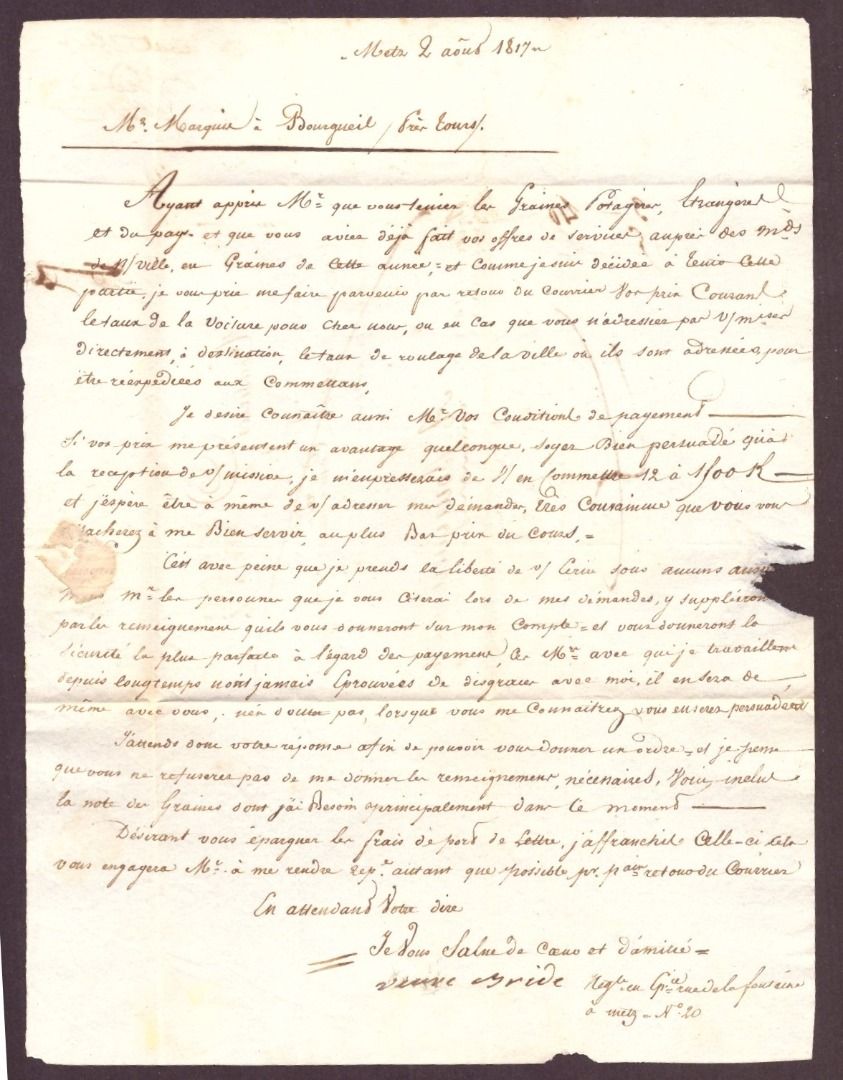 Metz 2 août 1817
Mr. Marquis à Bourgueil, près tours.
Ayant appris Mr. que vous teniez les Graines Potagères, Etrangères
et du pays et que vous aviez déjà fait vos offres de services, auprès des mds
de n/ ville, en Graines de Cette année, = et Comme je suis décidée à tenir Cette
partie, je vous prie me faire parvenir par retour du Courrier Vos prix Courant
le taux de la Voiture pour Cher nous, ou en Cas que vous n'adressiez pas v/ m.ises
directement, à destination, le taux de roulage de la ville où ils sont adressées, pour
être réexpédiées aux Commettans,
Je desire Connaître aussi Mr. Vos Conditions de payement
Si vos prix me présentent un avantage quelconque, soyez Bien persuadé qu'à
la reception de v/ missive, je m'empresserais de Commettre 12 à 1500 K
et j'espère être à même de v/ adresser mes démandes, très Convaincue que vous vous
tacherez à me Bien servir, au plus Bas prix du Cours, =
C'est avec peine que je prends la liberté de v/ Ecrire sous aucuns
mais mrs les personnes que je vous Citerai lors de mes démandes, y suppléront
par les renseignement qu'ils vous donneront sur mon Compte = et vous donneront la
sécurité la plus parfaite à l'égard des payement, Ces Mrs avec qui je travaillent
depuis longtemps n'ont jamais Eprouvées de disgraces avec moi, il en sera de
même avec vous, n'en doutez pas, lorsque vous me Connaitrez, vous en serez persuadé
J'attends donc votre réponse afin de pouvoir vous donner un ordre, et je pense
que vous ne refuserez pas de me donner les renseignement nécessaires, Voici inclus
la note des Graines dont j'ai Besoin principalement dans Ce moment
Désirant vous éparguer les frais de port de Lettre, j'affranchis Celle-ci Cela
vous engagera Mr. à me rendre rep.e autant que possible pr. retour du Courrier
En attendant Votre dire
Je Vous Salue de Cœur et d'amitié =
veuve Bride Negte. en Gr. rue de la fontaine
à metz = No. 20